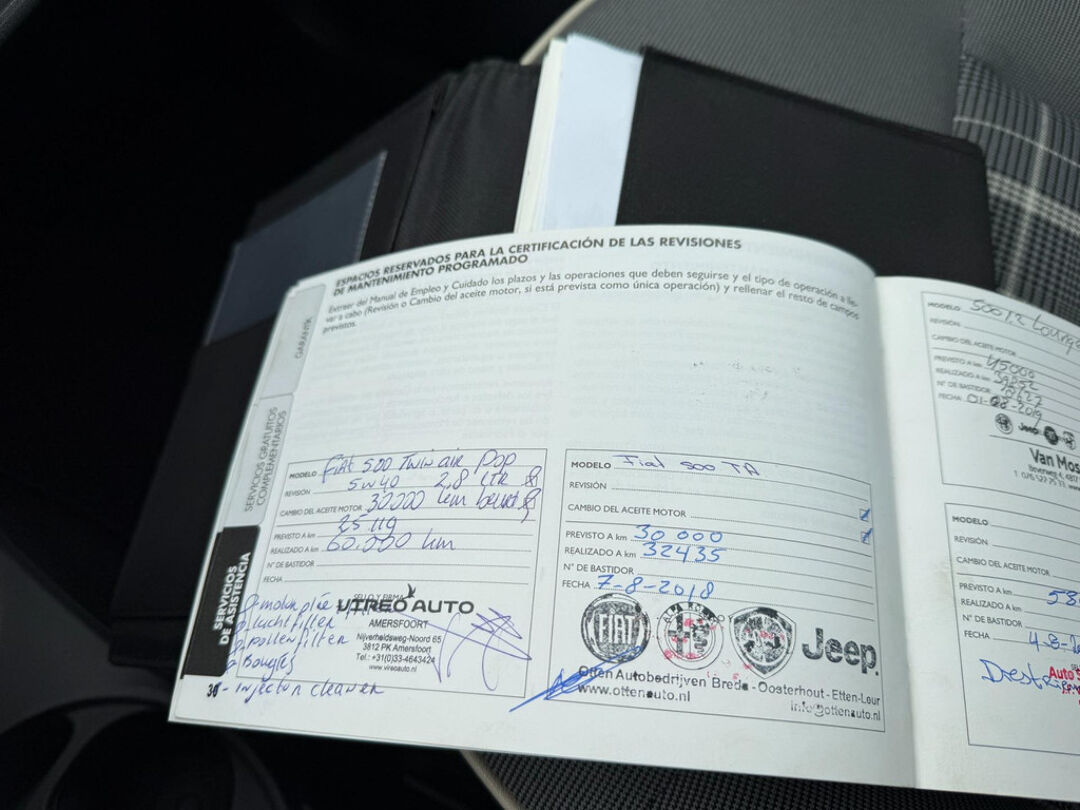 ESPACIOS RESERVADOS PARA LA CERTIFICACIÓN DE LAS REVISIONES
DE MANTENIMIENTO PROGRAMADO
Extraer del Manual de Empleo y Cuidado los plazos y las operaciones que deben seguirse y el tipo de operación a lle-
var a cabo (Revisión o Cambio del aceite motor, si está prevista como única operación) y rellenar el resto de campos
previstos.
SERVICIOS GRATUITOS
COMPLEMENTARIOS
SERVICIOS
DE ASISTENCIA
MODELO Fiat 500 Twin air Pop
REVISIÓN 5w40 2,8 LTR
CAMBIO DEL ACEITE MOTOR 30000 km
25.119
PREVISTO A km
REALIZADO A km 60.000 km
N° DE BASTIDOR
FECHA
SELLO Y FIRMA
VIREO AUTO
AMERSFOORT
Nijverheidsweg-Noord 65
3812 PK Amersfoort
Tel.: +31(0)33-4643424
www.vireoauto.nl
luchtfilter
pollenfilter
Bougies
- injector cleaner
MODELO Fiat 500 TA
REVISIÓN
CAMBIO DEL ACEITE MOTOR
PREVISTO A km 30 000
REALIZADO A km 32435
N° DE BASTIDOR
FECHA 7-8-2018
FIAT
Jeep
Otten Autobedrijven Breda - Oosterhout - Etten-Leur
www.ottenauto.nl
info@ottenauto.nl
MODELO 500 1.2 Lounge
REVISIÓN
CAMBIO DEL ACEITE MOTOR
PREVISTO A km 45000
REALIZADO A km
N° DE BASTIDOR
FECHA 01-08-2019
Van Mos
MODELO
REVISIÓN
CAMBIO DEL ACEITE MOTOR
PREVISTO A km
REALIZADO A km
N° DE BASTIDOR
FECHA 4-8-
Auto